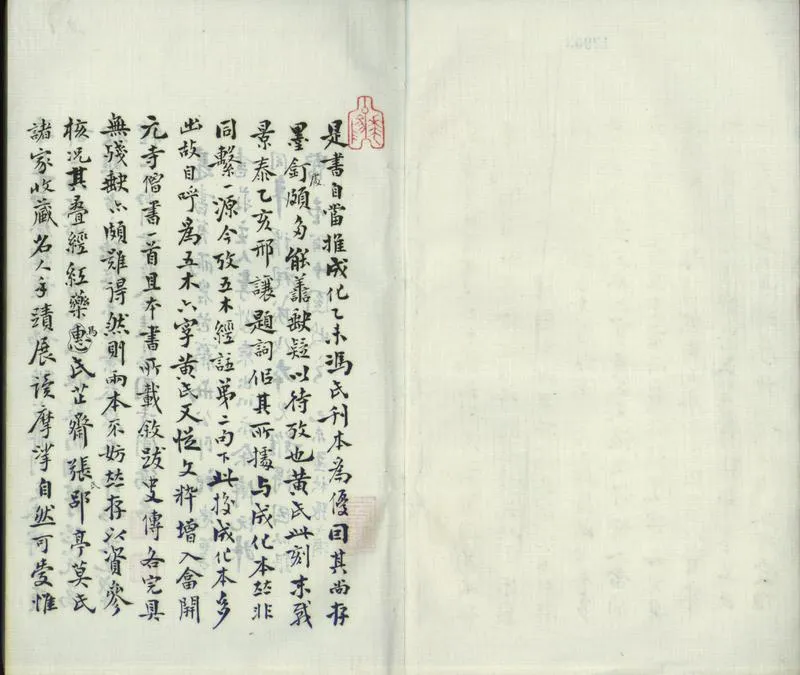 是書自當推成化乙未馮氏刊本為優因其尚存
墨釘頗多能蓋闕疑以待攷也黃氏此刻末載
景泰乙亥邢讓題詞但其所據与成化本並非
同繫一源今攷五木經註第二句下此挍成化本多
出故目呼為五木六字黃氏又從文粹增入畣開
元寺僧書一首且本書所載敘跋史傳各完具
無殘闕亦頗難得然則兩本不妨並存以資參
核况其疊經紅藥馮氏芷齋張氏郘亭莫氏
諸家收藏名人手蹟展讀摩挲自然可愛惟